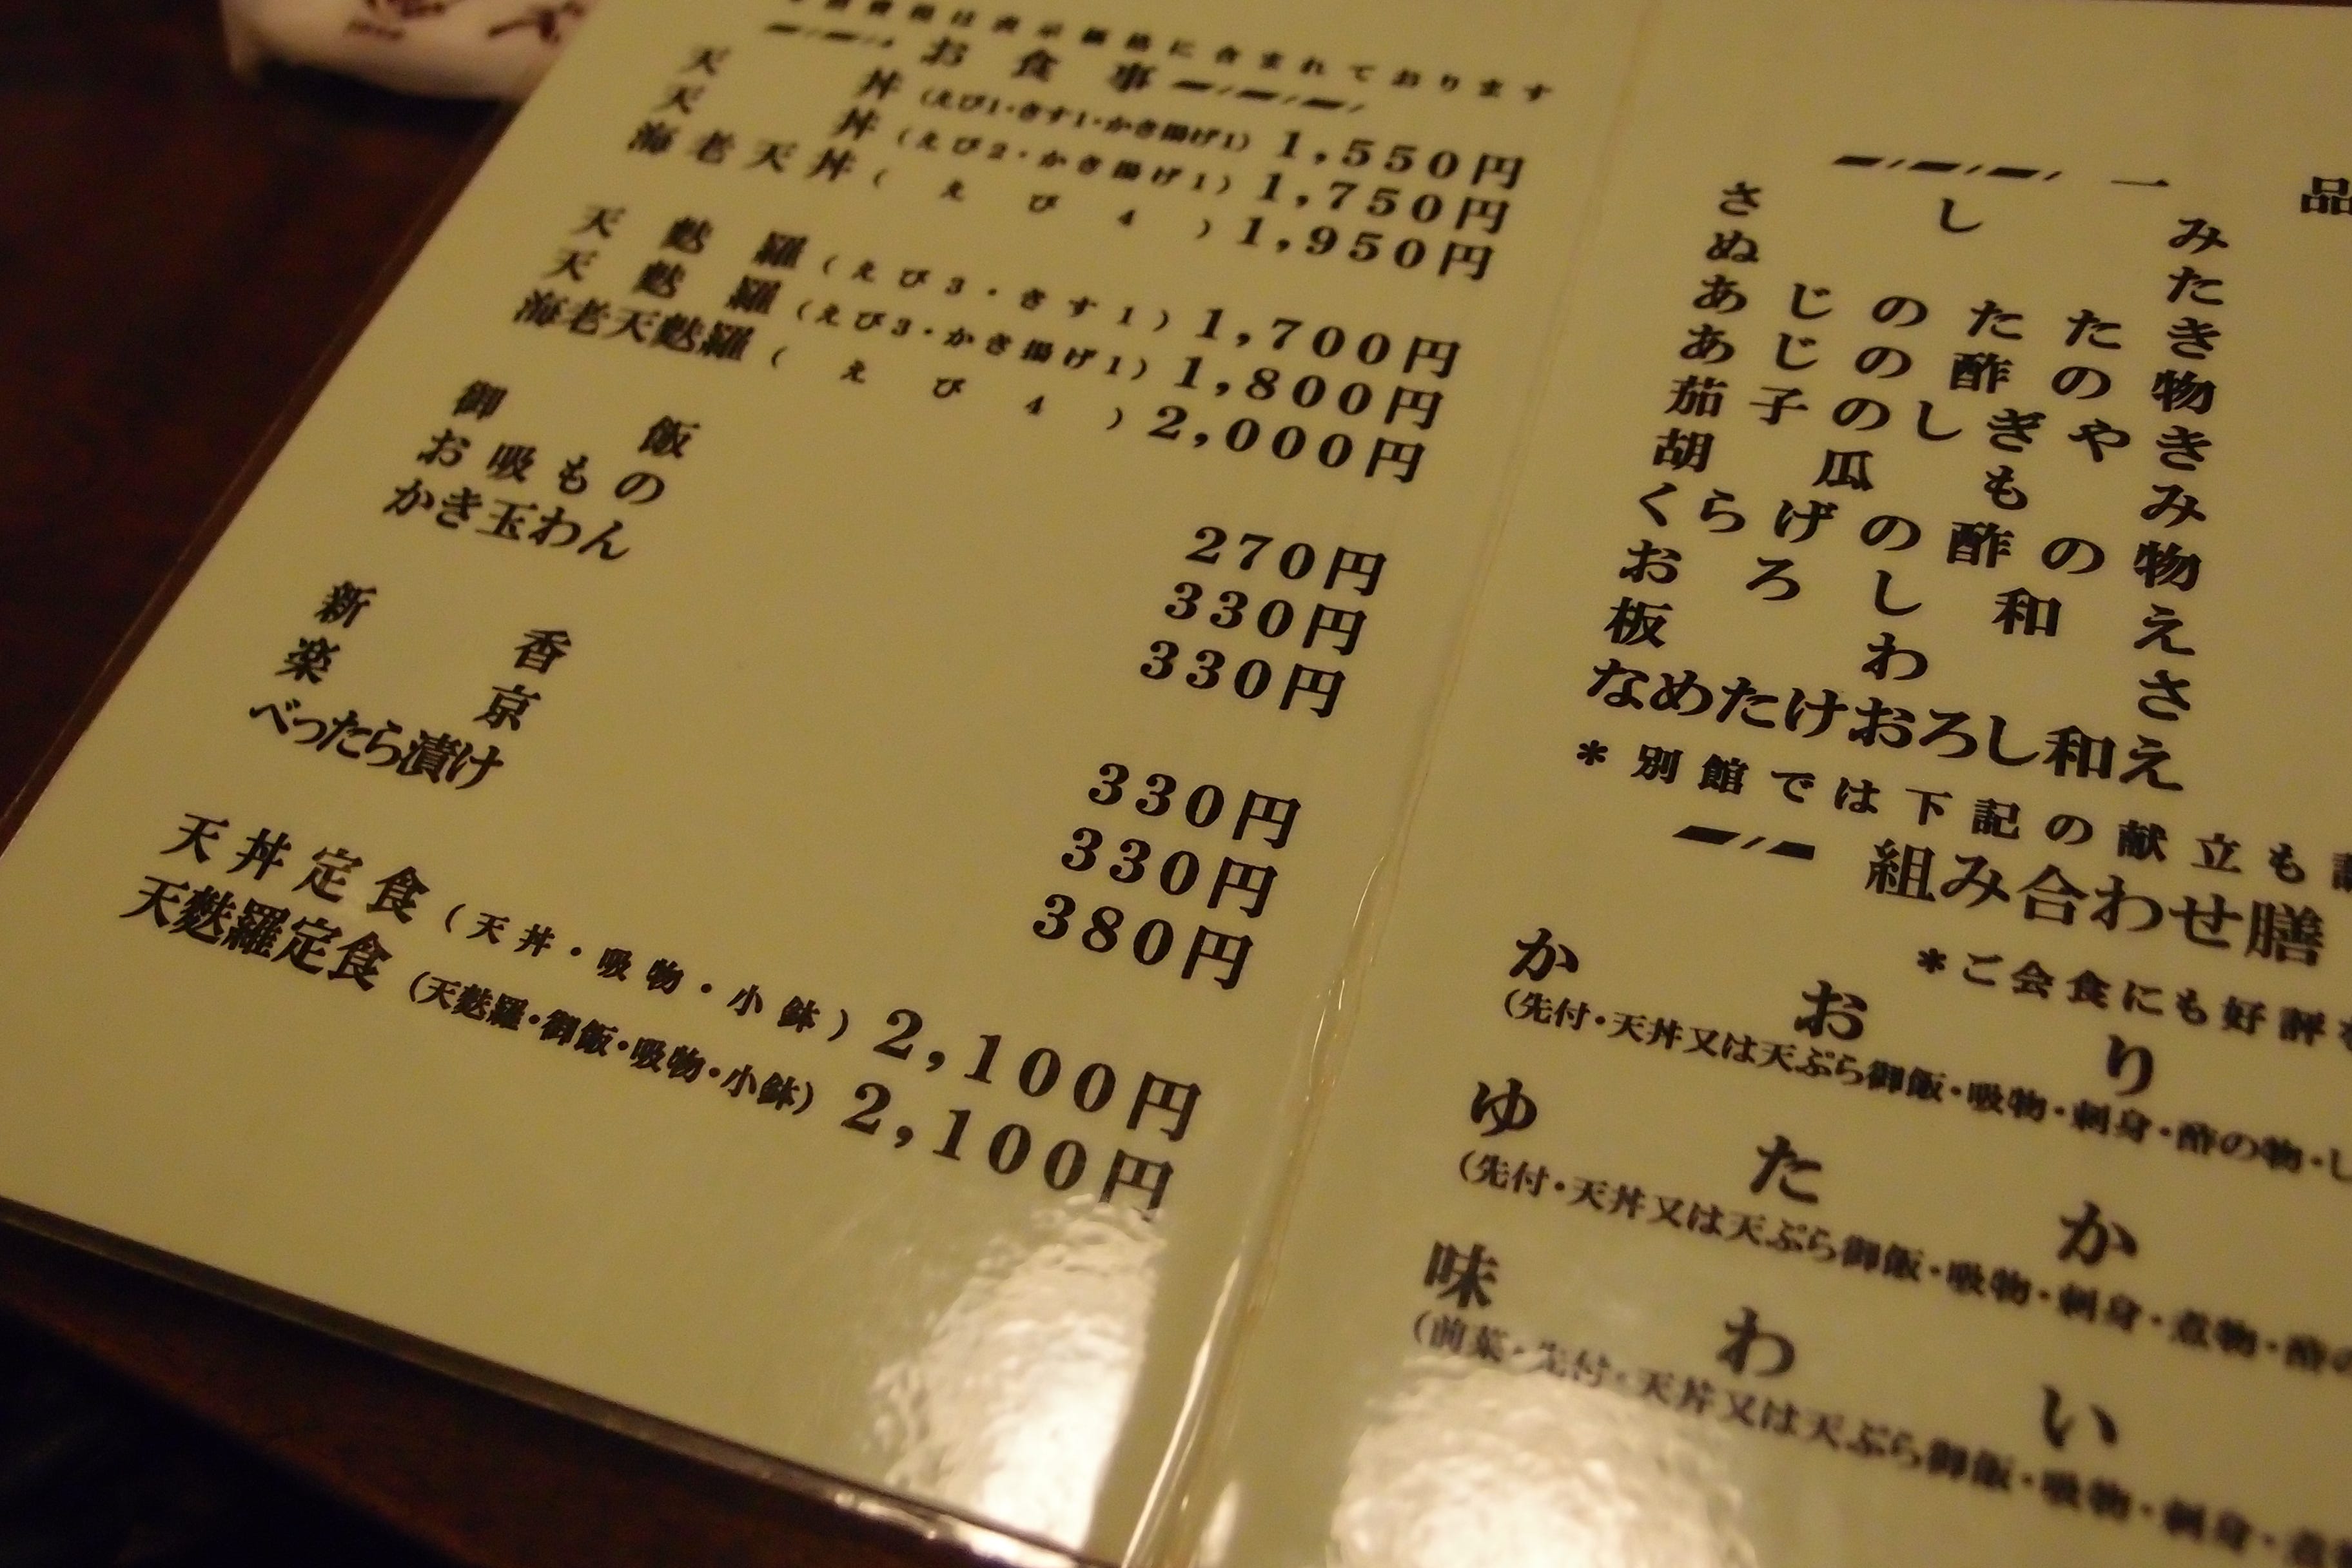 消費税は表示価格に含まれております
お食事
天丼(えび1・きす1・かき揚げ1) 1,550円
天丼(えび2・かき揚げ1) 1,750円
海老天丼(えび4) 1,950円
天麩羅(えび3・きす1) 1,700円
天麩羅(えび3・かき揚げ1) 1,800円
海老天麩羅(えび4) 2,000円
御飯 270円
お吸もの 330円
かき玉わん 330円
新香 330円
楽京 330円
べったら漬け 380円
天丼定食(天丼・吸物・小鉢) 2,100円
天麩羅定食(天麩羅・御飯・吸物・小鉢) 2,100円
一品
さしみ
ぬた
あじのたたき
あじの酢の物
茄子のしぎやき
胡瓜もみ
くらげの酢の物
おろし和え
板わさ
なめたけおろし和え
*別館では下記の献立も
組み合わせ膳
*ご会食にも好評
かおり
(先付・天丼又は天ぷら御飯・吸物・刺身・酢の物・し
ゆたか
(先付・天丼又は天ぷら御飯・吸物・刺身・煮物・酢の
味わい
(前菜・先付・天丼又は天ぷら御飯・吸物・刺身・煮